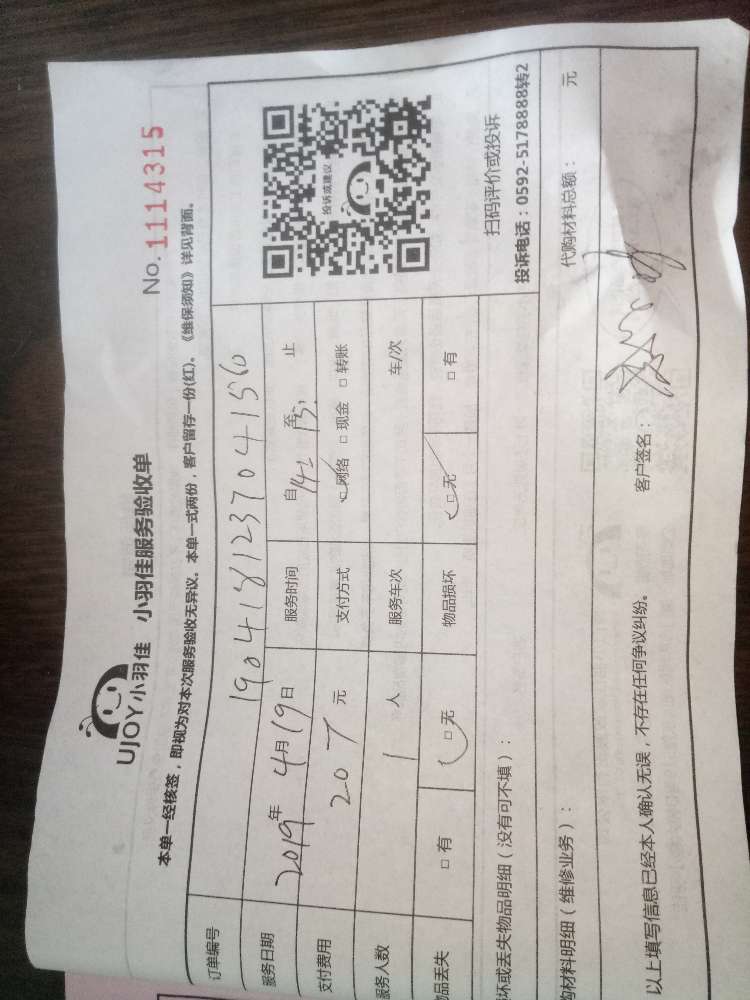 UJOY小羽佳 小羽佳服务验收单
No.1114315
本单一经核签，即视为对本次服务验收无异议。本单一式两份，客户留存一份(红)。《维保须知》详见背面。
订单编号 1904181237041560
服务日期 2019年4月19日 服务时间 自 至 止
支付费用 207元 支付方式 □网络 □现金 □转账
服务人数 1人 服务车次 车/次
品丢失 □有 □无 物品损坏 □无 □有
投诉或建议
扫码评价或投诉
投诉电话：0592-5178888转2
坏或丢失物品明细（没有可不填）：
购材料明细（维修业务）： 代购材料总额： 元
以上填写信息已经本人确认无误，不存在任何争议纠纷。 客户签名：